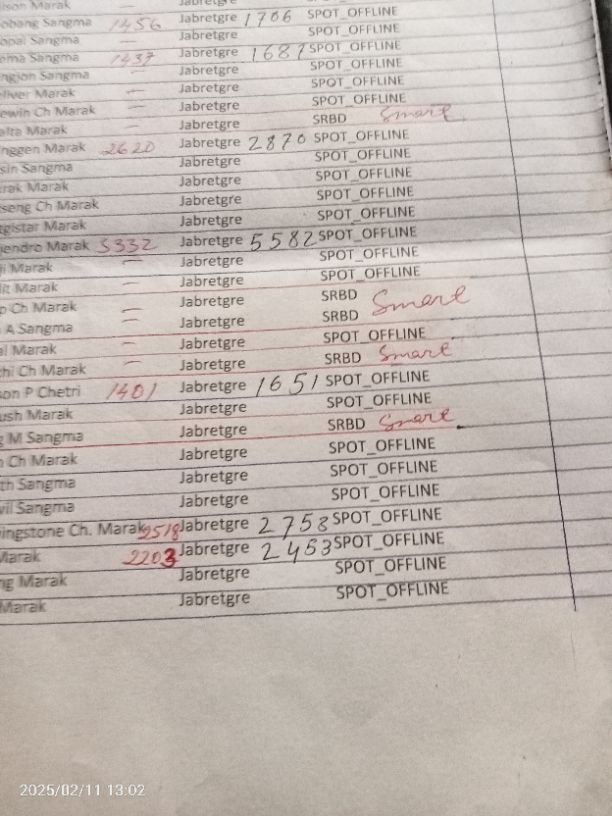 Marak Jabretgre SPOT_OFFLINE
Sangma 1456 Jabretgre 1706 SPOT_OFFLINE
Sangma — Jabretgre SPOT_OFFLINE
Sangma 1437 Jabretgre 1687 SPOT_OFFLINE
Sangma — Jabretgre SPOT_OFFLINE
Marak — Jabretgre SPOT_OFFLINE
Ch Marak — Jabretgre SPOT_OFFLINE
Marak Jabretgre SRBD Smart
Marak 2620 Jabretgre 2870 SPOT_OFFLINE
Sangma Jabretgre SPOT_OFFLINE
Marak Jabretgre SPOT_OFFLINE
Ch Marak Jabretgre SPOT_OFFLINE
Marak Jabretgre SPOT_OFFLINE
Marak 5332 Jabretgre 5582 SPOT_OFFLINE
Marak — Jabretgre SPOT_OFFLINE
Marak — Jabretgre SPOT_OFFLINE
Ch Marak — Jabretgre SRBD Smart
A Sangma — Jabretgre SRBD
Marak — Jabretgre SPOT_OFFLINE
Ch Marak — Jabretgre SRBD Smart
P Chetri 1401 Jabretgre 1651 SPOT_OFFLINE
Marak Jabretgre SPOT_OFFLINE
M Sangma Jabretgre SRBD Smart
Ch Marak Jabretgre SPOT_OFFLINE
Sangma Jabretgre SPOT_OFFLINE
Sangma Jabretgre SPOT_OFFLINE
ingstone Ch. Marak 2518 Jabretgre 2758 SPOT_OFFLINE
Marak 2203 Jabretgre 2453 SPOT_OFFLINE
Marak Jabretgre SPOT_OFFLINE
Marak Jabretgre SPOT_OFFLINE
2025/02/11 13:02